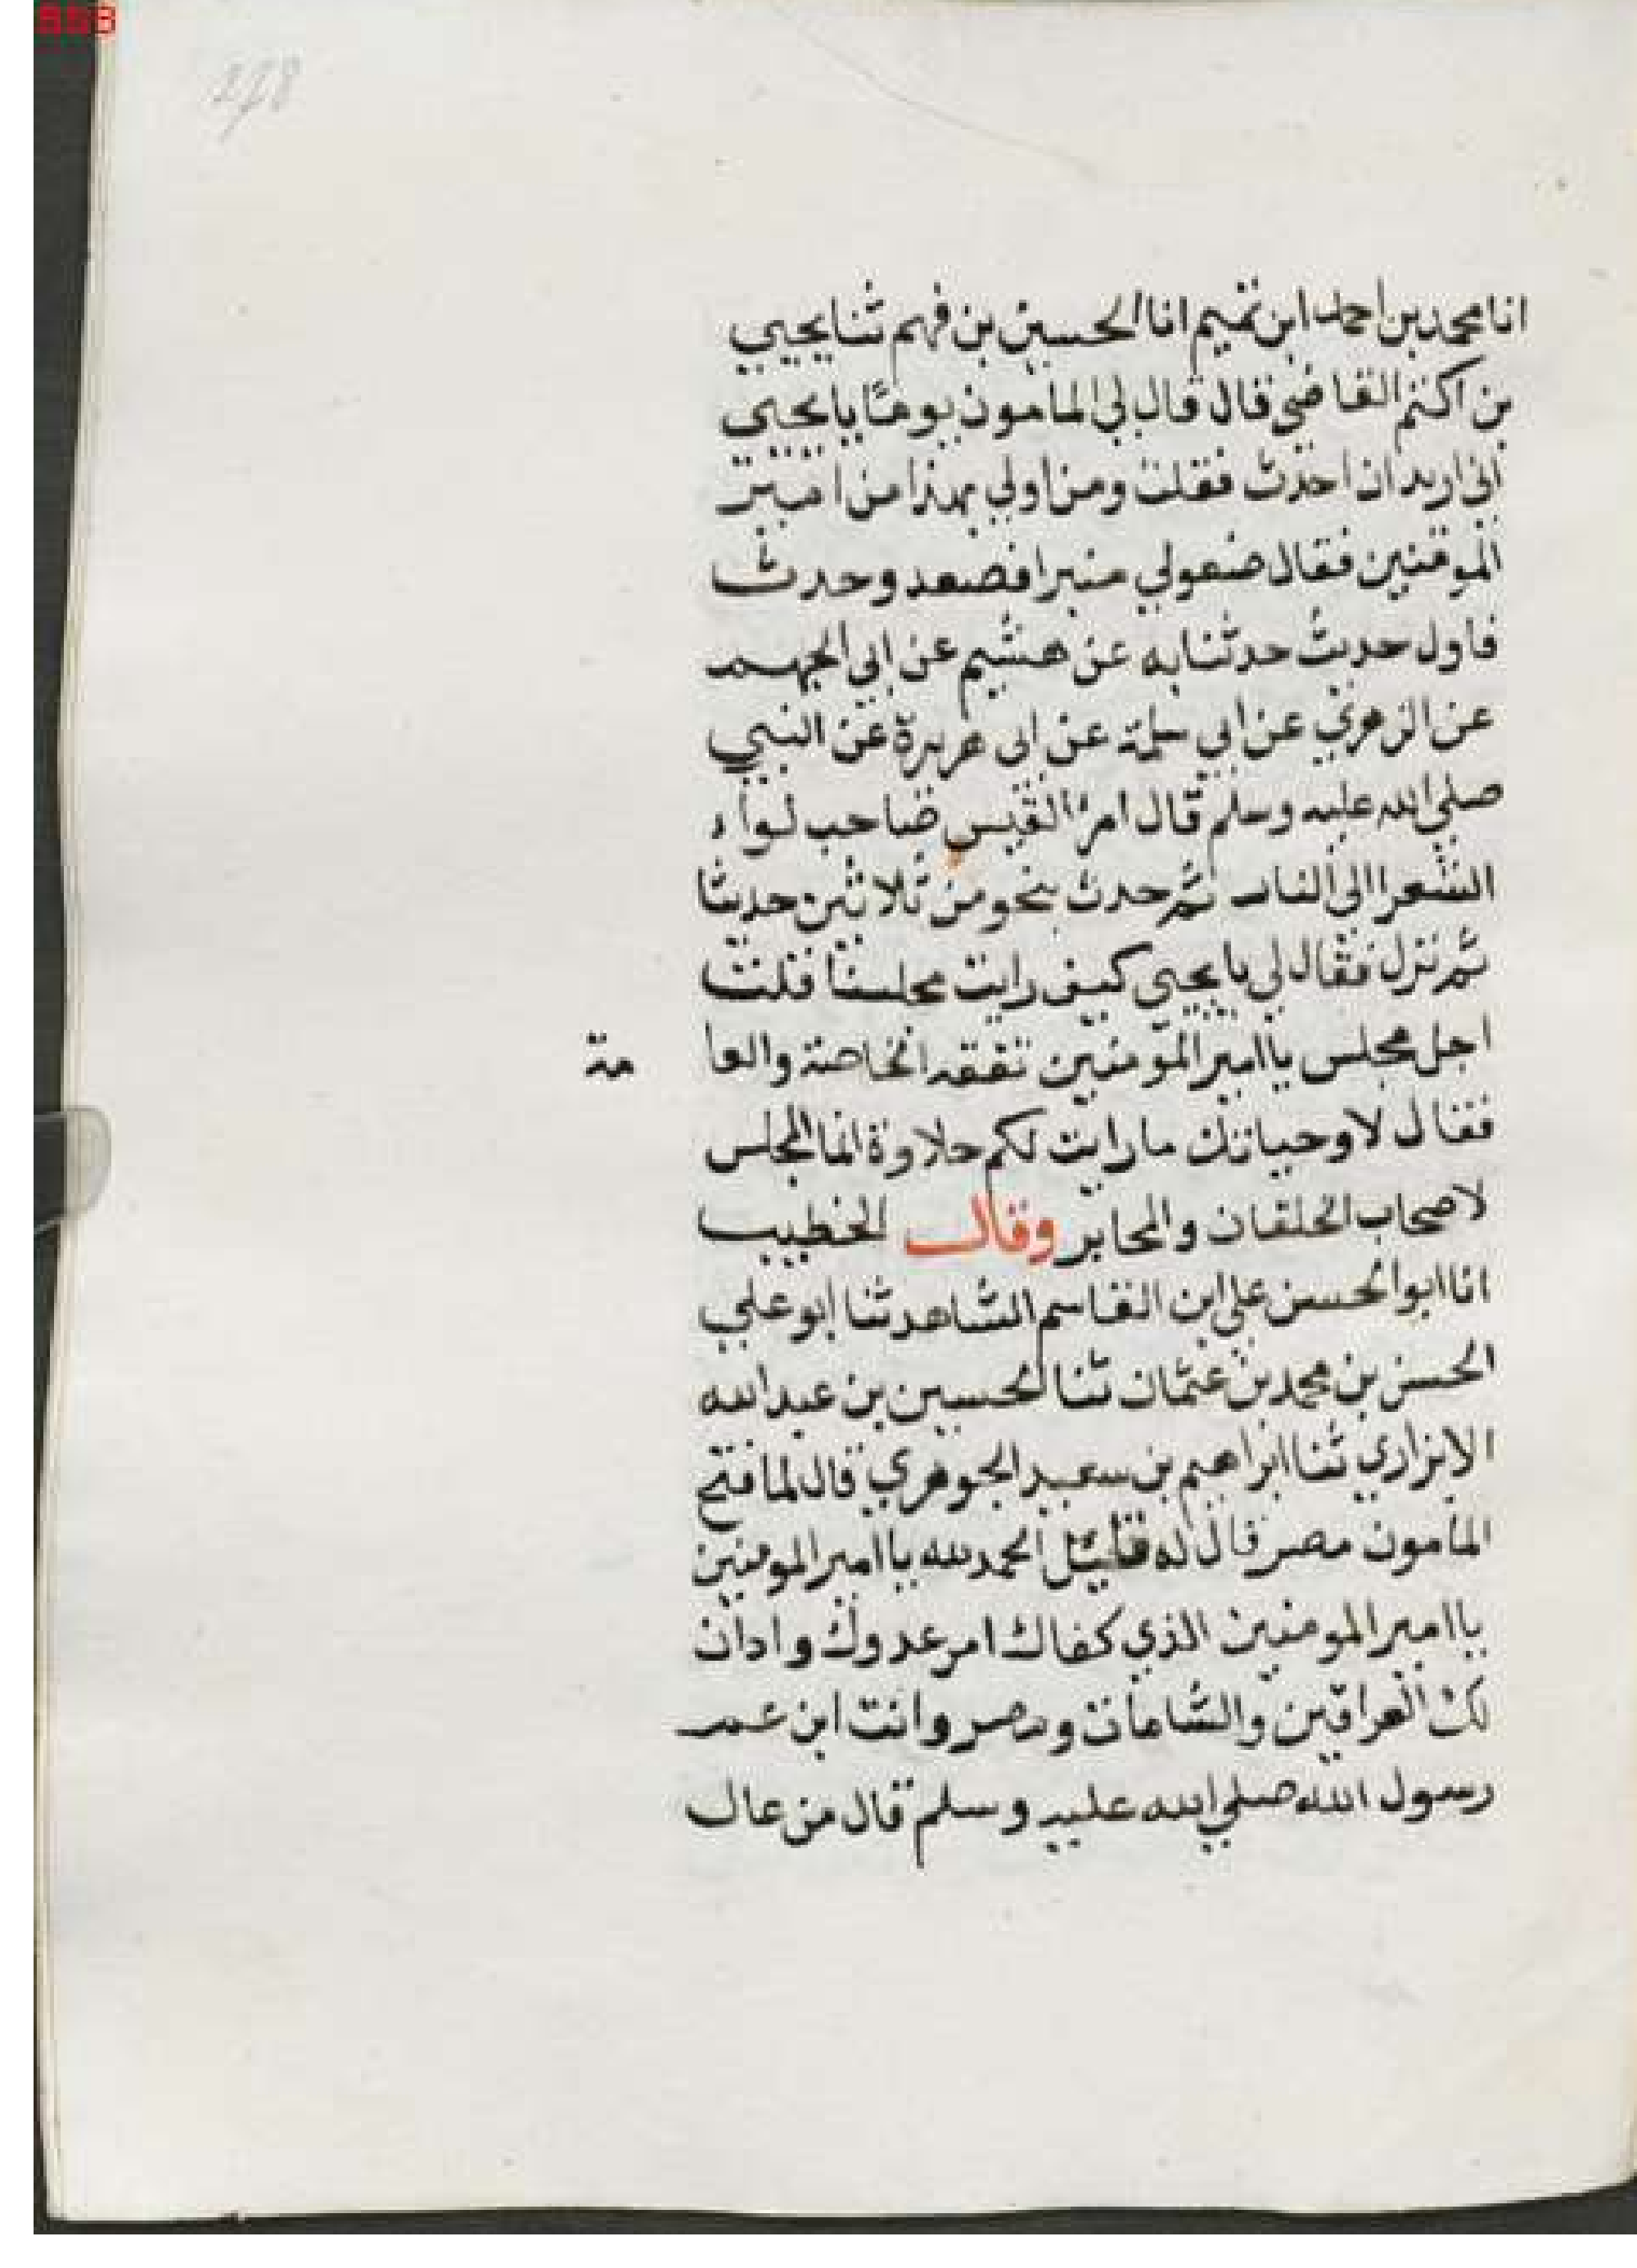 278
انا محمد بن احمد ابن تميم انا الحسين بن فهم ثنا يحيي
بن اكثم القاضي قال قال لي المامون يومًا يا يحيي
اني اريد ان احدث فقلت ومن اولي بهذا من امير
المومنين فقال ضعولي منبرا فصعد وحدث
فاول حديث حدثنا به عن هشيم عن ابي الجهم
عن الزهري عن ابي سلمة عن ابي هريرة عن النبي
صلي الله عليه وسلم قال امرُ القيس صاحب لواء
الشعرا الي النار ثم حدث بنحو من ثلاثين حديثا
ثم نزل فقال لي يا يحيي كيف رايت مجلسنا فلت
اجل مجلس يا امير المومنين تفقه الخاصة والعا مة
فقال لا وحياتك ما رايت لكم حلاوة انما المجلس
لاصحاب الخلقان والمحابر وقال الخطيب
انا ابو الحسن علي ابن القاسم الشاهد ثنا ابو علي
الحسن بن محمد بن عثمان ثنا الحسين بن عبد الله
الابزاري ثنا ابراهيم بن سعيد الجوهري قال لما فتح
المامون مصر قال له الحمد لله يا امير المومنين
يا امير المومنين الذي كفاك امر عدوك وادان
لك العراقين والشامات ومصر وانت ابن عم
رسول الله صلي الله عليه وسلم قال من عال